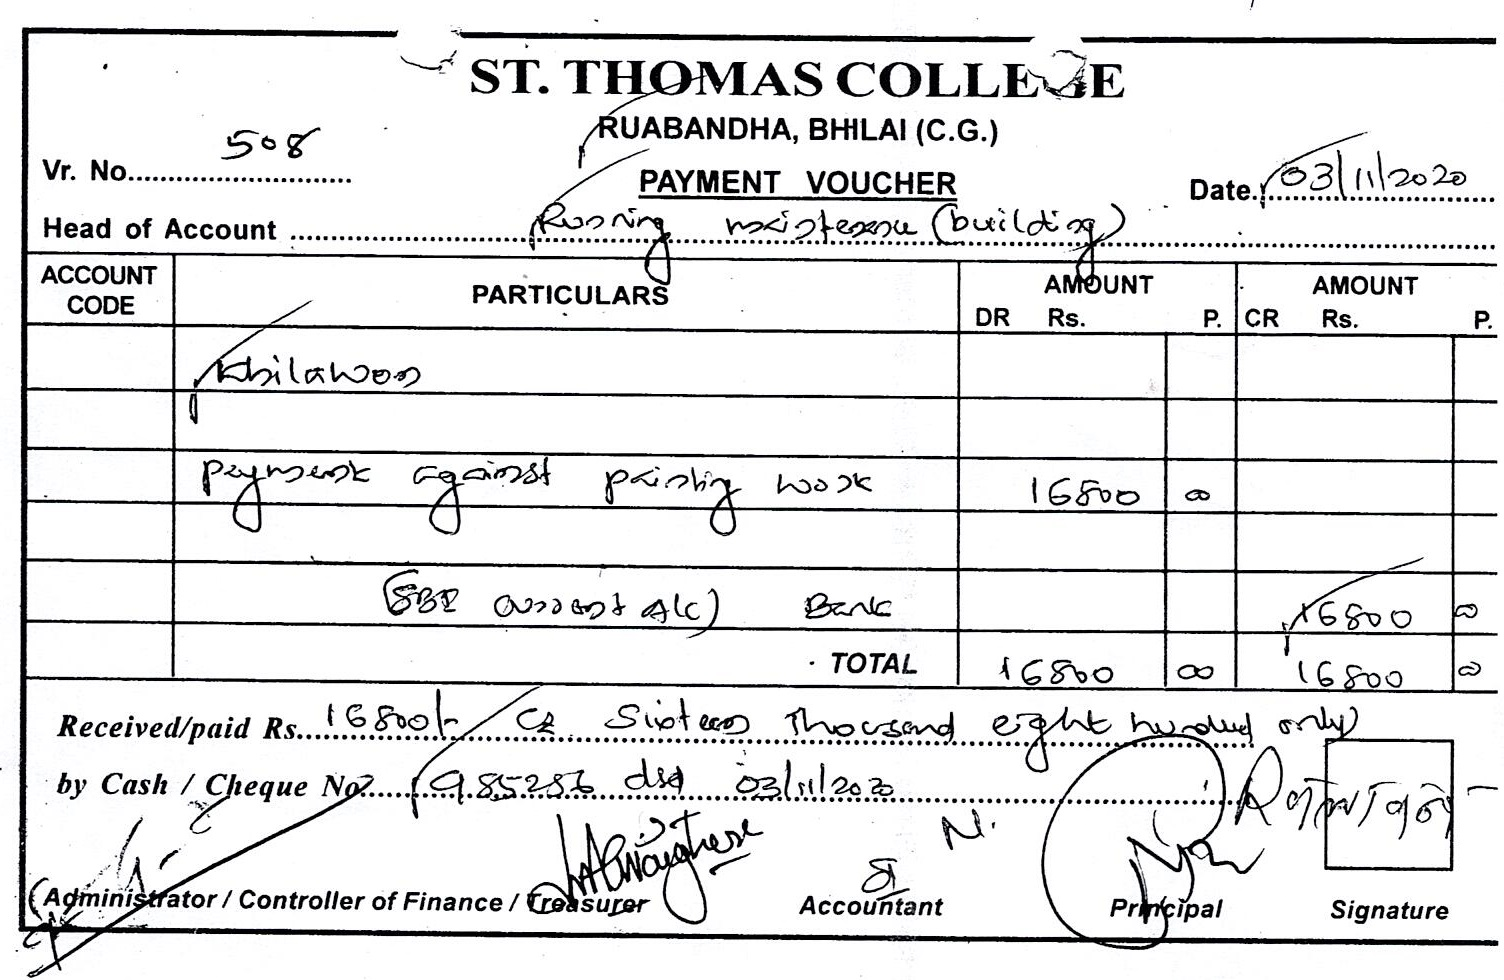 ST. THOMAS COLLEGE
RUABANDHA, BHILAI (C.G.)
Vr. No. 508
PAYMENT VOUCHER
Date. 03/11/2020
Head of Account Running maintenance (building)
ACCOUNT CODE PARTICULARS AMOUNT DR Rs. P. AMOUNT CR Rs. P.
Khilawan
payment against painting work 16800 00
(SBI current A/c) Bank 16800 00
TOTAL 16800 00 16800 00
Received/paid Rs. 16800/- Sixteen Thousand eight hundred only
by Cash / Cheque No. 985286 dtd 03/11/2020
Administrator / Controller of Finance / Treasurer Accountant Principal Signature